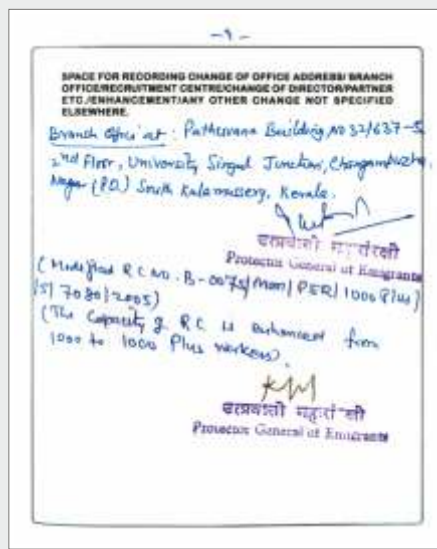 -9-
SPACE FOR RECORDING CHANGE OF OFFICE ADDRESS/ BRANCH
OFFICE/RECRUITMENT CENTRE/CHANGE OF DIRECTOR/PARTNER
ETC./ENHANCEMENT/ANY OTHER CHANGE NOT SPECIFIED
ELSEWHERE.
Branch Office at : Pathuvana Building, NO 32/637-
2nd Floor, University Singal Junction, Changampuzha
Nagar (P.O.) South Kalamassery, Kerala.
उत्प्रवासी महासंरक्षी
Protector General of Emigrants
(Modified R C NO. B-0075/Mum/PER/1000 Plus/
/5/ 7080/2005)
(The Capacity of RC is enhanced from
1000 to 1000 Plus workers).
उत्प्रवासी महासंरक्षी
Protector General of Emigrants